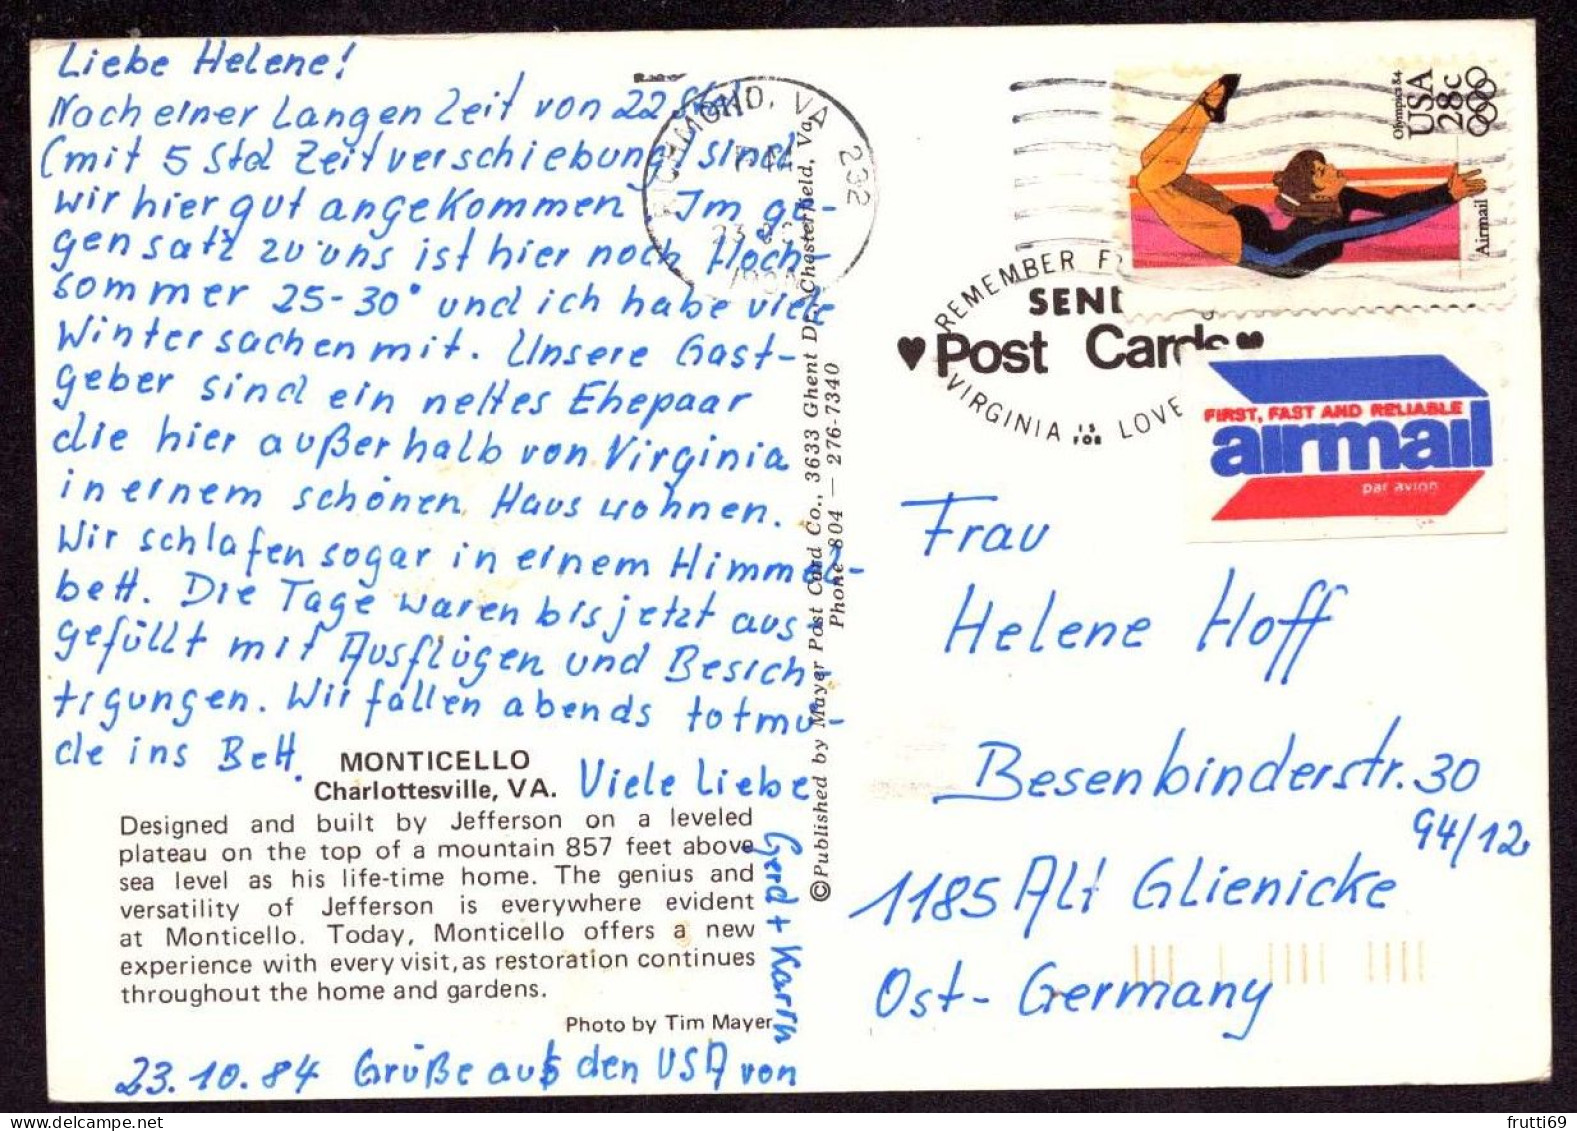 Liebe Helene!
Nach einer Langen Zeit von 22 Std
(mit 5 Std Zeitverschiebung) sind
wir hier gut angekommen. Im ge-
gensatz zu uns ist hier noch Hoch-
sommer 25-30° und ich habe viele
Wintersachen mit. Unsere Gast-
geber sind ein nettes Ehepaar
die hier außerhalb von Virginia
in einem schönen Haus wohnen.
Wir schlafen sogar in einem Himmel-
bett. Die Tage waren bis jetzt aus-
gefüllt mit Ausflügen und Besich-
tigungen. Wir fallen abends totmü-
de ins Bett.
Viele Liebe
23.10.84 Grüße aus den USA von
Gerd + Karin
MONTICELLO
Charlottesville, VA.
Designed and built by Jefferson on a leveled
plateau on the top of a mountain 857 feet above
sea level as his life-time home. The genius and
versatility of Jefferson is everywhere evident
at Monticello. Today, Monticello offers a new
experience with every visit, as restoration continues
throughout the home and gardens.
Photo by Tim Mayer
©Published by Mayer Post Card Co., 3633 Ghent Dr., Chesterfield, Va.
Phone 804 — 276-7340
RICHMOND, VA 232
REMEMBER
SEND
♥Post Cards♥
VIRGINIA IS FOR LOVE
Olympics 84
USA
28c
Airmail
FIRST, FAST AND RELIABLE
airmail
par avion
Frau
Helene Hoff
Besenbinderstr. 30
94/12
1185 Alt Glienicke
Ost-Germany
frutti69